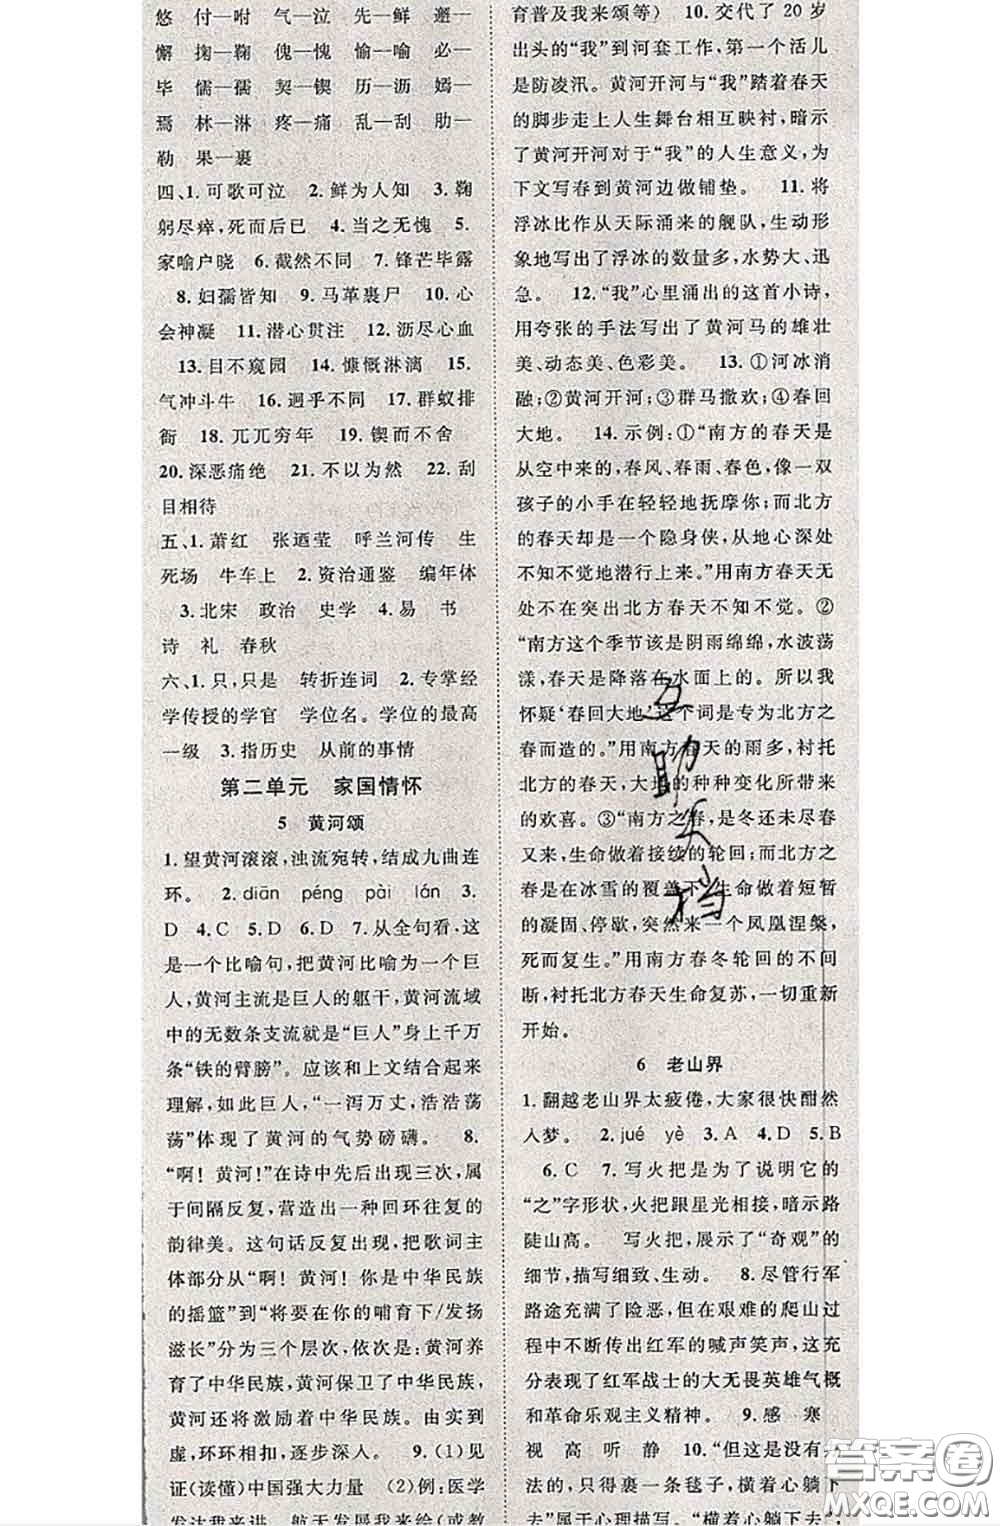 悠 付—咐 气—泣 先—鲜 邂—
懈 掬—鞠 傀—愧 愉—喻 必—
毕 懦—孺 契—锲 历—沥 嫣—
焉 林—淋 疼—痛 乱—刮 肋—
勒 果—裹
四、1. 可歌可泣 2. 鲜为人知 3. 鞠
躬尽瘁,死而后已 4. 当之无愧 5.
家喻户晓 6. 截然不同 7. 锋芒毕露
8. 妇孺皆知 9. 马革裹尸 10. 心
会神凝 11. 潜心贯注 12. 沥尽心血
13. 目不窥园 14. 慷慨淋漓 15.
气冲斗牛 16. 迥乎不同 17. 群蚁排
衙 18. 兀兀穷年 19. 锲而不舍
20. 深恶痛绝 21. 不以为然 22. 刮
目相待
五、1. 萧红 张迺莹 呼兰河传 生
死场 牛车上 2. 资治通鉴 编年体
3. 北宋 政治 史学 4. 易 书
诗 礼 春秋
六、1. 只,只是 转折连词 2. 专掌经
学传授的学官 学位名。学位的最高
一级 3. 指历史 从前的事情
第二单元 家国情怀
5 黄河颂
1. 望黄河滚滚,浊流宛转,结成九曲连
环。 2. diān péng pài lán 3.
D 4. C 5. D 6. D 7. 从全句看,这
是一个比喻句,把黄河比喻为一个巨
人,黄河主流是巨人的躯干,黄河流域
中的无数条支流就是“巨人”身上千万
条“铁的臂膀”。应该和上文结合起来
理解,如此巨人,“一泻万丈,浩浩荡
荡”体现了黄河的气势磅礴。 8.
“啊！黄河！”在诗中先后出现三次,属
于间隔反复,营造出一种回环往复的
韵律美。这句话反复出现,把歌词主
体部分从“啊！黄河！你是中华民族
的摇篮”到“将要在你的哺育下/发扬
滋长”分为三个层次,依次是:黄河养
育了中华民族,黄河保卫了中华民族,
黄河还将激励着中华民族。由实到
虚,环环相扣,逐步深入。 9. (1)见
证(读懂)中国强大力量 (2)例:医学
发达我来讲 航天发展我来绘(或教
育普及我来颂等) 10. 交代了 20 岁
出头的“我”到河套工作,第一个活儿
是防凌汛。黄河开河与“我”踏着春天
的脚步走上人生舞台相互映衬,暗示
了黄河开河对于“我”的人生意义,为
下文写春到黄河边做铺垫。 11. 将
浮冰比作从天际涌来的舰队,生动形
象地写出了浮冰的数量多,水势大、迅
急。 12. “我”心里涌出的这首小诗,
用夸张的手法写出了黄河马的雄壮
美、动态美、色彩美。 13. ①河冰消
融;②黄河开河;③群马撒欢;④春回
大地。 14. 示例:①“南方的春天是
从空中来的,春风、春雨、春色,像一双
孩子的小手在轻轻地抚摩你;而北方
的春天却是一个隐身侠,从地心深处
不知不觉地潜行上来。”用南方春天无
处不在突出北方春天不知不觉。②
“南方这个季节该是阴雨绵绵,水波荡
漾,春天是降落在水面上的。所以我
怀疑‘春回大地’这个词是专为北方之
春而造的。”用南方春天的雨多,衬托
北方的春天,大地的种种变化所带来
的欢喜。③“南方之春,是冬还未尽春
又来,生命做着接续的轮回;而北方之
春是在冰雪的覆盖下,生命做着短暂
的凝固、停歇,突然来一个凤凰涅槃,
死而复生。”用南方春冬轮回的不间
断,衬托北方春天生命复苏,一切重新
开始。
6 老山界
1. 翻越老山界太疲倦,大家很快酣然
入梦。 2. jué yè 3. A 4. D 5. B
6. C 7. 写火把是为了说明它的
“之”字形状,火把跟星光相接,暗示路
陡山高。 写火把,展示了“奇观”的
细节,描写细致、生动。 8. 尽管行军
路途充满了险恶,但在艰难的爬山过
程中不断传出红军的喊声笑声,这充
分表现了红军战士的大无畏英雄气概
和革命乐观主义精神。 9. 感 寒
视 高 听 静 10. “但这是没有办
法的,只得裹一条毯子,横着心躺下
去。”属于心理描写。“横着心躺下去”
互助文档
答案圈
MXQE.COM